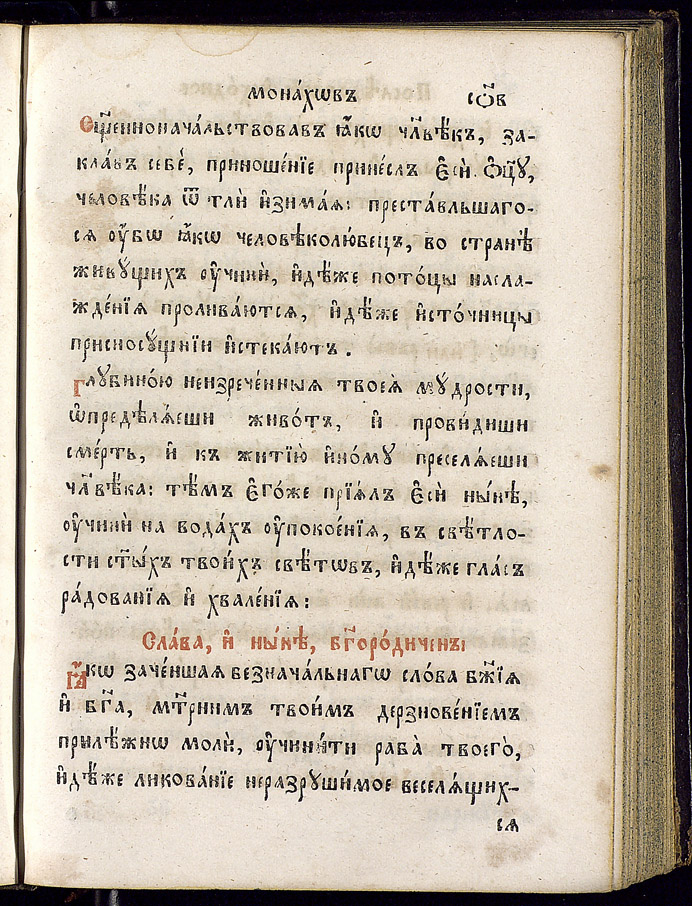 мона́хѡвъ со҃в
Ѡсщ҃еннонача́льствовавъ ꙗ҆́кѡ чл҃вѣ́къ, за-
кла́въ себѐ, приноше́нїе прине́слъ є҆сѝ ѻ҆ц҃ꙋ̀,
человѣ́ка ѿ тлѝ и҆зима́ѧ: преста́вльшаго-
сѧ ᲂу҆̀бѡ ꙗ҆́кѡ человѣколю́бецъ, во странѣ̀
живꙋ́щихъ ᲂу҆чинѝ, и҆дѣ́же пото́цы насла-
жде́нїѧ пролива́ютсѧ, и҆дѣ́же и҆сто́чницы
присносꙋ́щнїи и҆стека́ютъ.
Глꙋбино́ю неизрече́нныѧ твоеѧ̀ мꙋ́дрости,
ѡ҆предѣлѧ́еши живо́тъ, и҆ прови́диши
сме́рть, и҆ къ житїю̀ и҆но́мꙋ преселѧ́еши
чл҃вѣ́ка: тѣ́мъ є҆го́же прїѧ́лъ є҆сѝ ны́нѣ,
ᲂу҆чинѝ на вода́хъ ᲂу҆покое́нїѧ, въ свѣ́тло-
сти ст҃ы́хъ твои́хъ свѣ́тѡвъ, и҆дѣ́же гла́съ
ра́дованїѧ и҆ хвале́нїѧ:
Сла́ва, и҆ ны́нѣ, бг҃оро́диченъ:
Ꙗ҆́кѡ заче́ншаѧ безнача́льнагѡ сло́ва бж҃їѧ
и҆ бг҃а, мт҃рнимъ твои́мъ дерзнове́нїемъ
прилѣ́жнѡ молѝ, ᲂу҆чини́ти раба̀ твоего̀,
и҆дѣ́же ликова́нїе неразрꙋши́мое веселѧ́щих-
сѧ